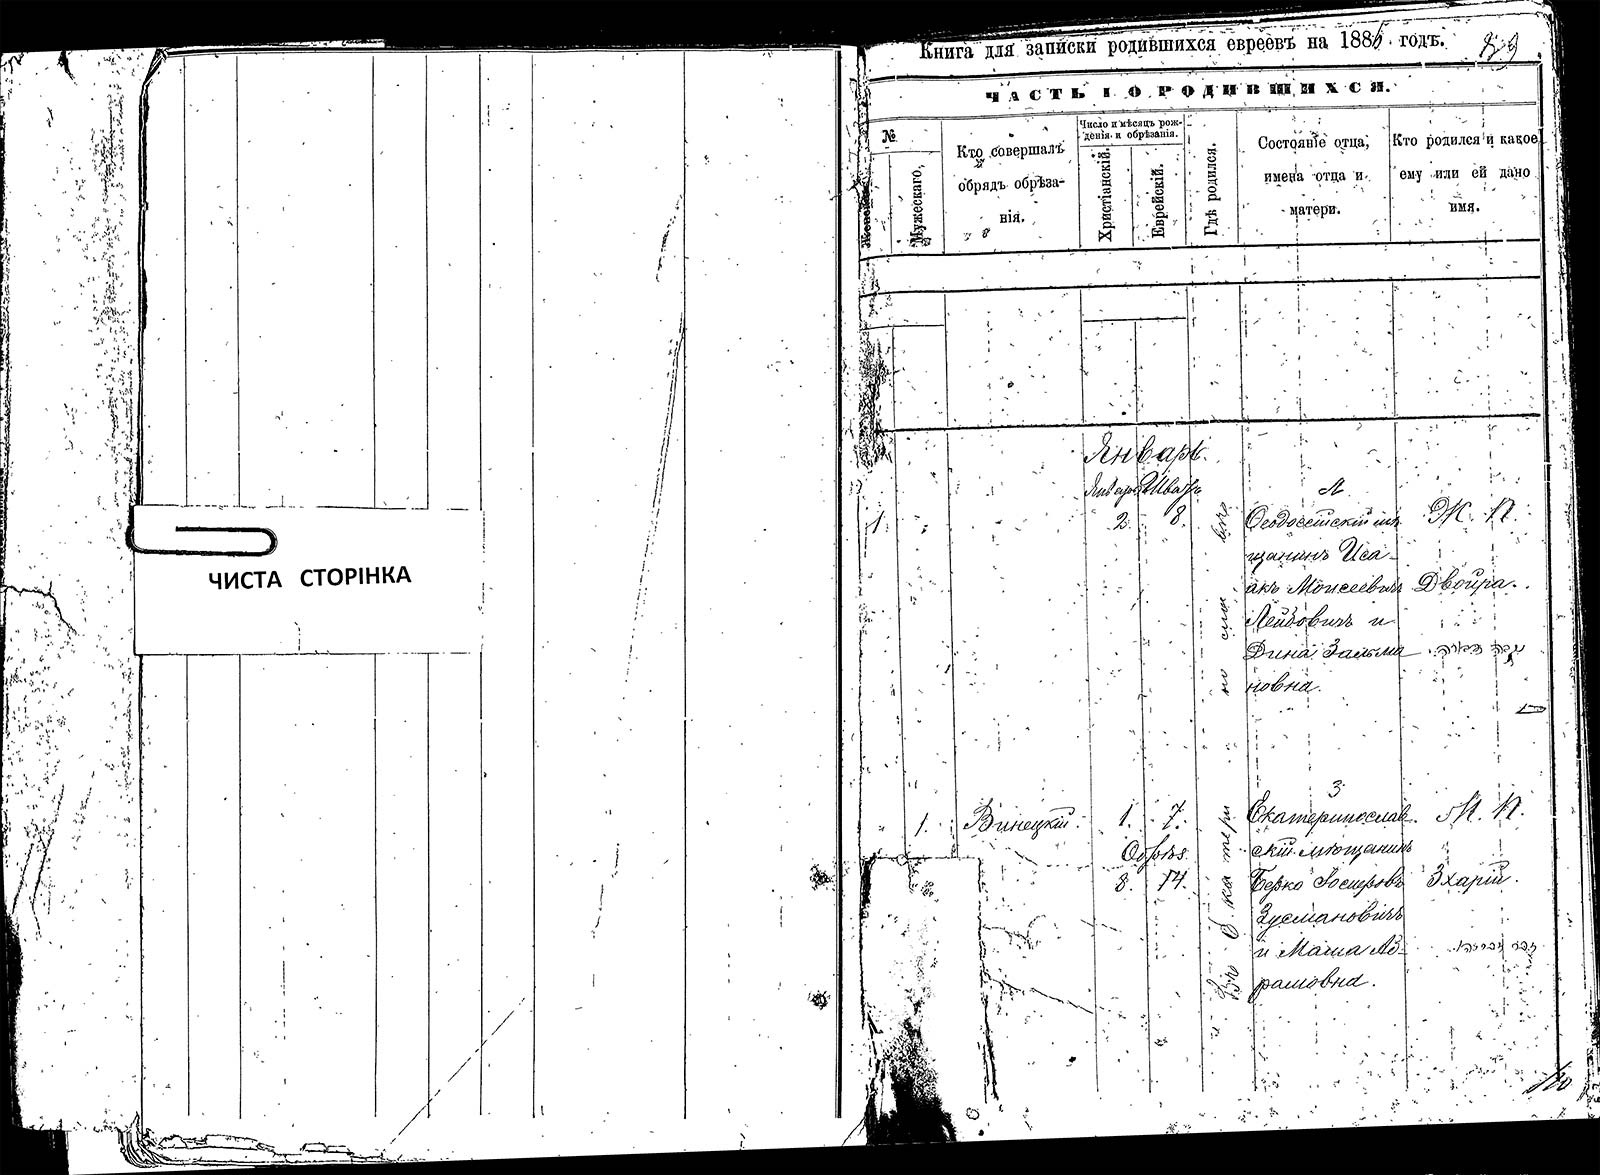 ЧИСТА СТОРІНКА
Книга для записки родившихся евреевъ на 1886 годъ.
ЧАСТЬ I О РОДИВШИХСЯ.
№
Женскаго.
Мужескаго,
Кто совершалъ
обрядъ обрѣза-
нія.
Число и мѣсяцъ рож-
денія и обрѣзанія.
Христіанскій.
Еврейскій.
Гдѣ родился.
Состояніе отца,
имена отца и
матери.
Кто родился и какое
ему или ей дано
имя.
Январь.
Январь Шватъ
1.
2. 8.
Въ Екатери
но сла
вѣ
Л
Ѳеодосійскій мѣ
щанинъ Иса-
акъ Моисеевичъ
Лейбовичъ и
Дина Залма
новна.
Ж. П.
Двойра.
1.
Винецкій.
1. 7.
Обрѣз
8. 14.
З
Екатеринослав
скій мѣщанинъ
Берко Іосифовъ
Зусмановичъ
и Маша Аб-
рамовна.
М. П.
Зхарій.